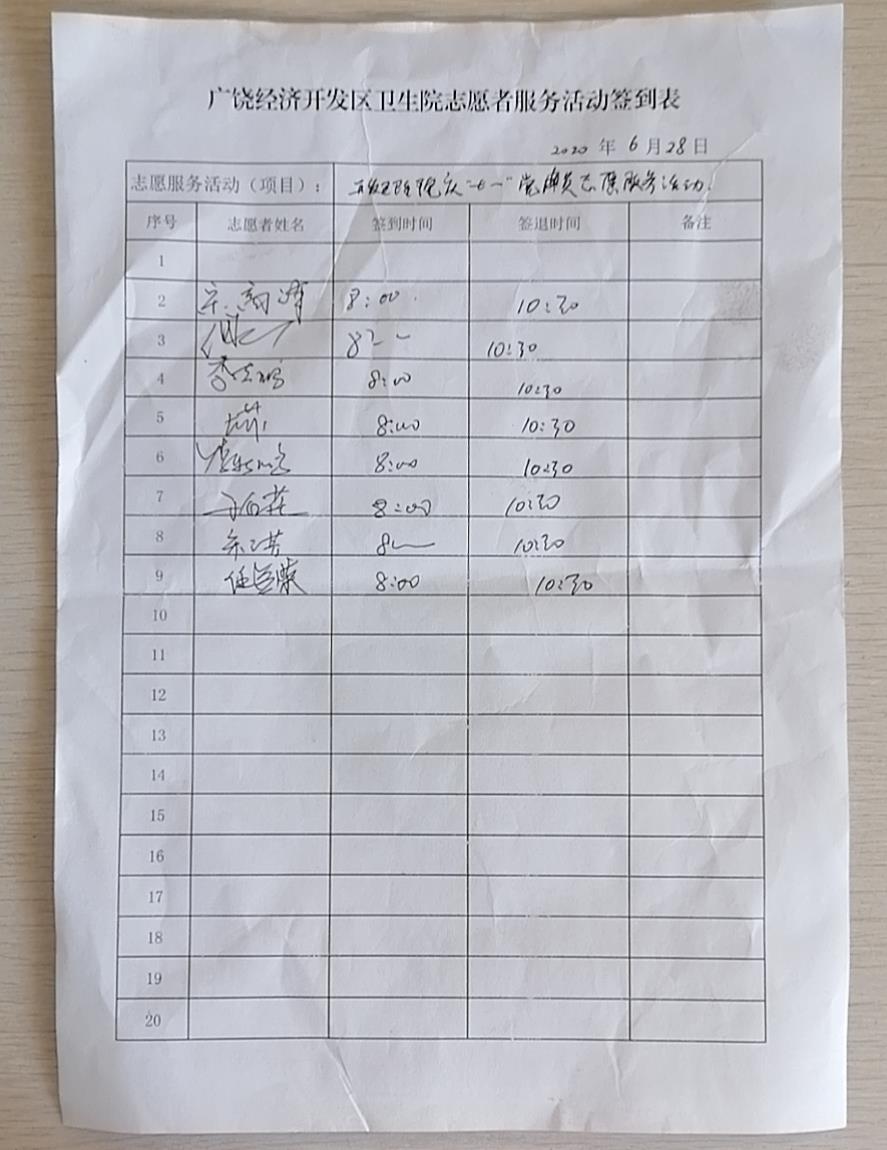 广饶经济开发区卫生院志愿者服务活动签到表
2020 年 6 月 28 日
志愿服务活动（项目）： “七一”党员志愿服务活动.
序号 志愿者姓名 签到时间 签退时间 备注
1
2 8:00 10:30
3 8 10:30
4 8:00 10:30
5 8:00 10:30
6 8:00 10:30
7 8:00 10:30
8 8 10:30
9 任 荣 8:00 10:30
10
11
12
13
14
15
16
17
18
19
20